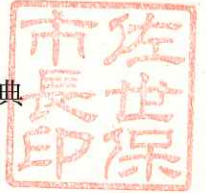 典
佐世保
市長印